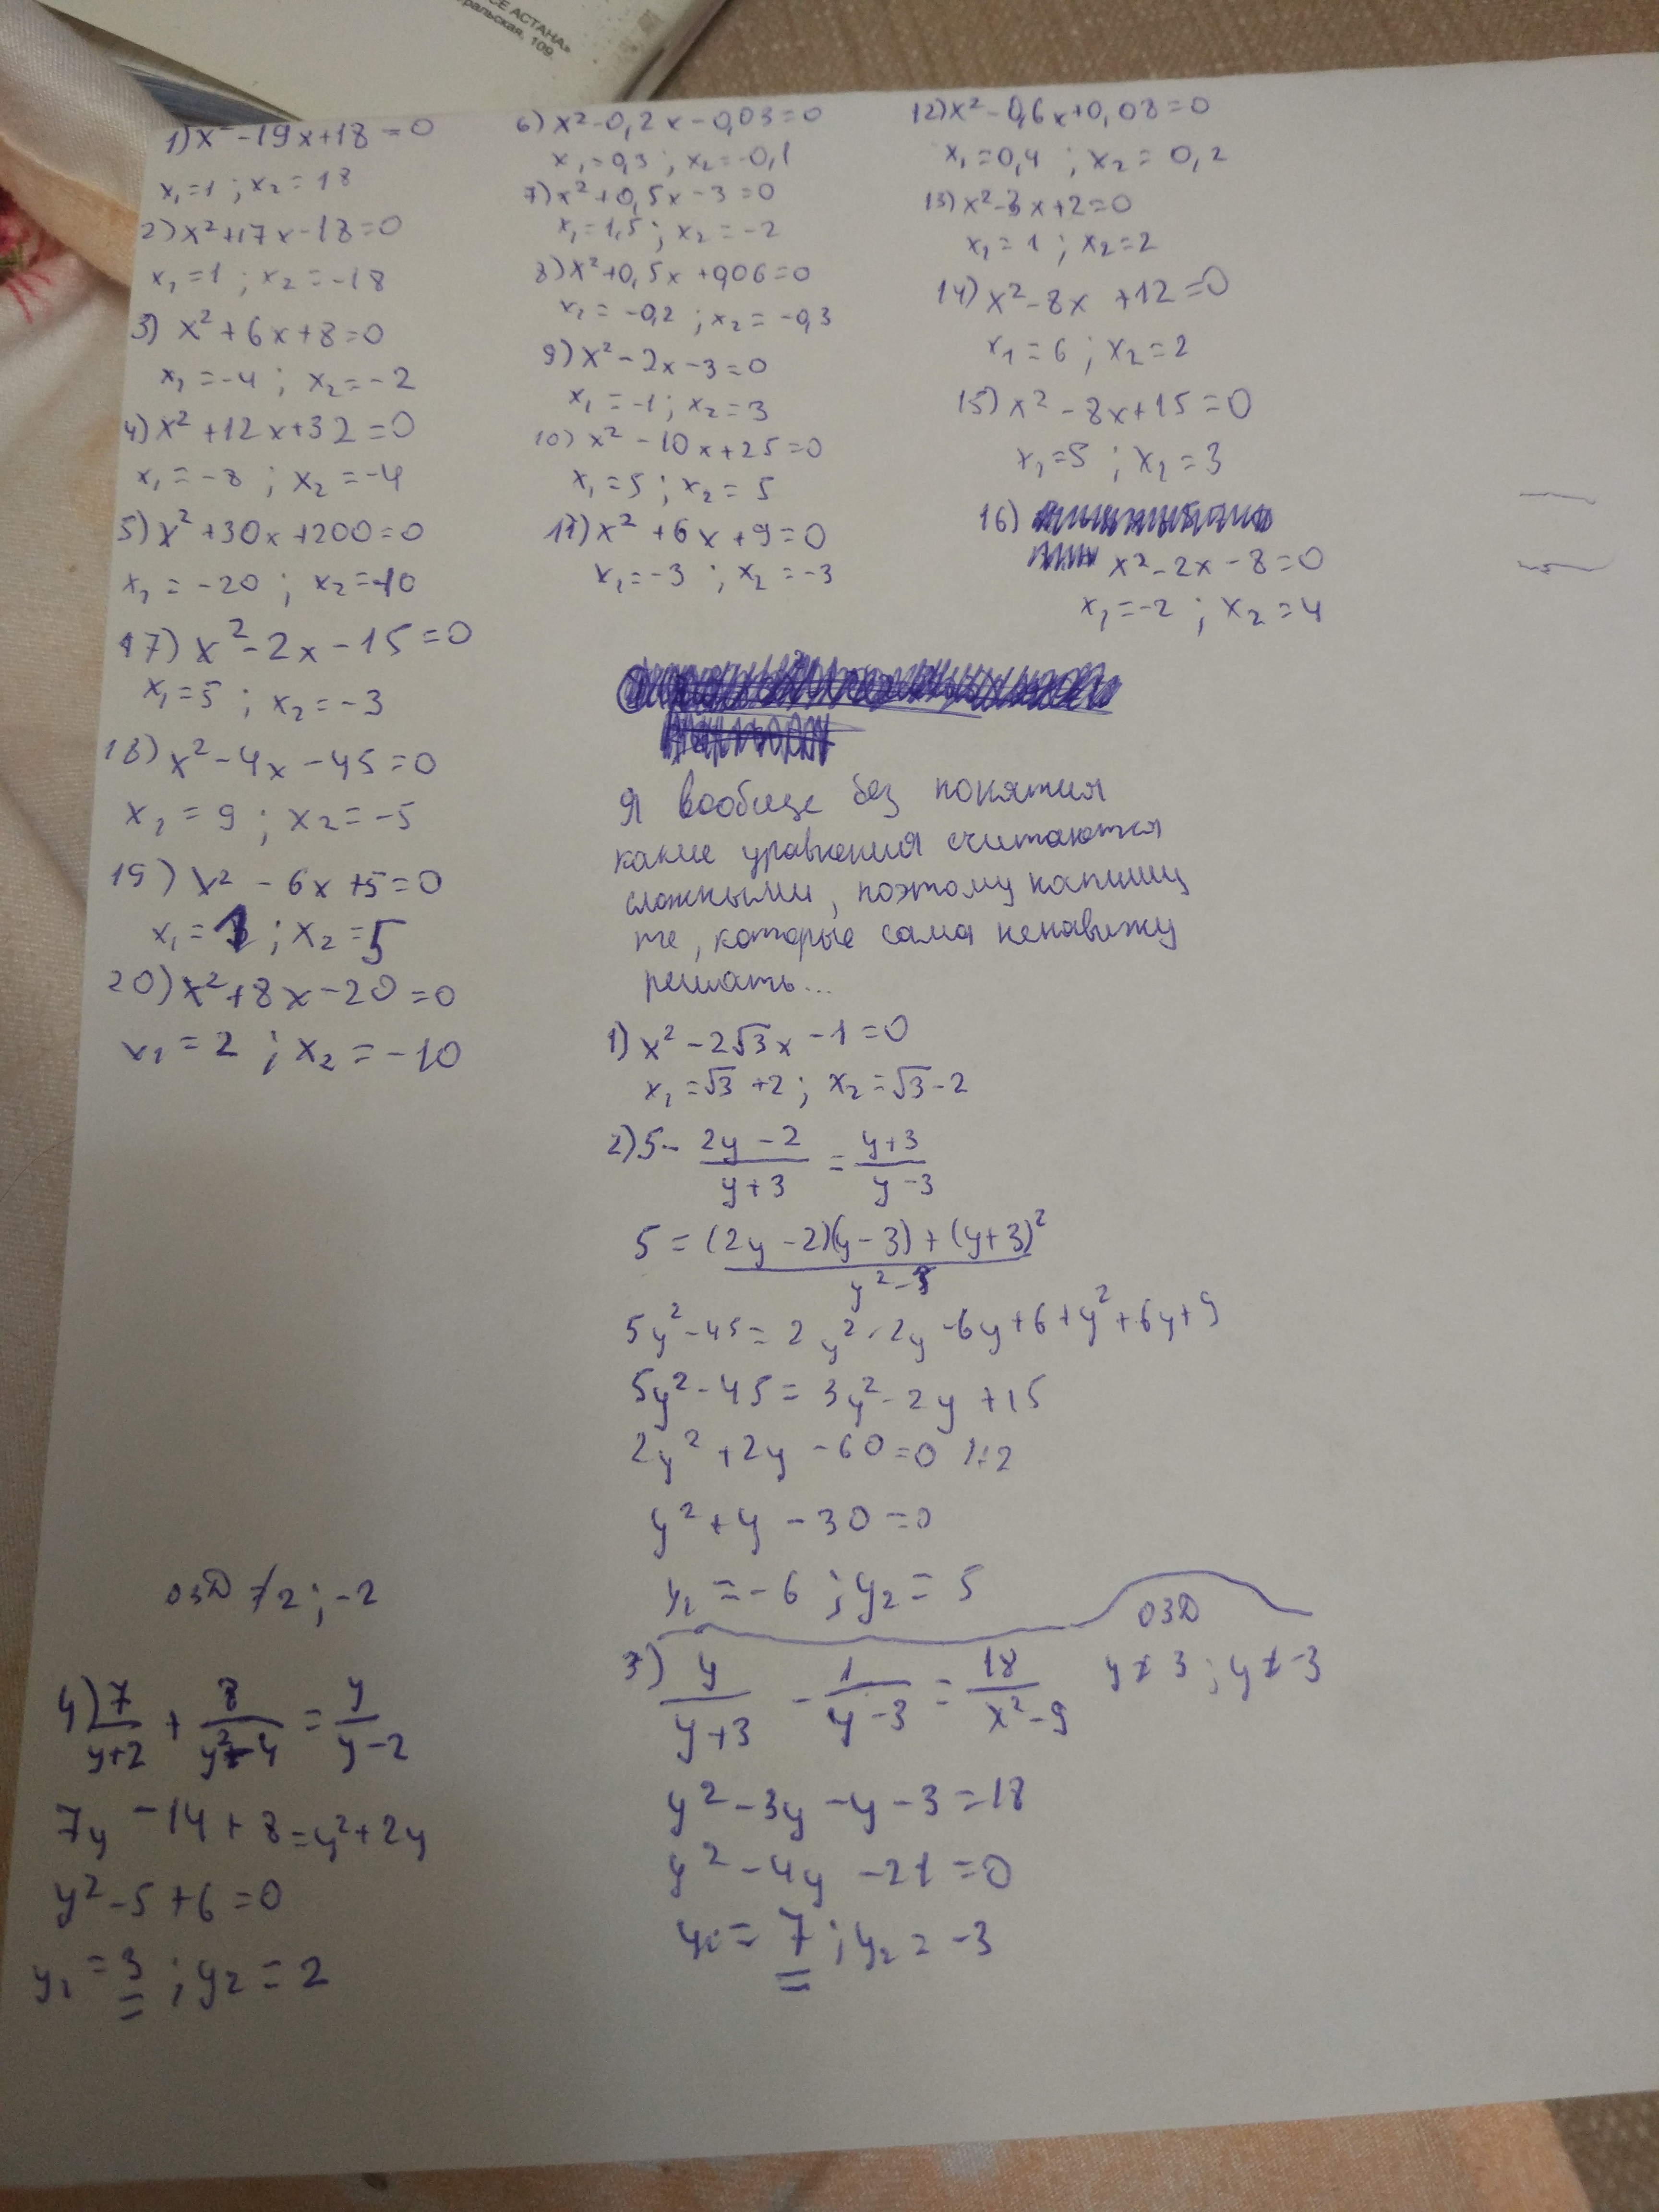 СЕ АСТАНА»
ральская, 109.
1) x² - 19x + 18 = 0
x₁ = 1 ; x₂ = 18
2) x² + 17x - 18 = 0
x₁ = 1 ; x₂ = -18
3) x² + 6x + 8 = 0
x₁ = -4 ; x₂ = -2
4) x² + 12x + 32 = 0
x₁ = -8 ; x₂ = -4
5) x² + 30x + 200 = 0
x₁ = -20 ; x₂ = -10
17) x² - 2x - 15 = 0
x₁ = 5 ; x₂ = -3
18) x² - 4x - 45 = 0
x₁ = 9 ; x₂ = -5
19) x² - 6x + 5 = 0
x₁ = 1 ; x₂ = 5
20) x² + 8x - 20 = 0
x₁ = 2 ; x₂ = -10
6) x² - 0,2x - 0,03 = 0
x₁ = 0,3 ; x₂ = -0,1
7) x² + 0,5x - 3 = 0
x₁ = 1,5 ; x₂ = -2
8) x² + 0,5x + 0,06 = 0
x₁ = -0,2 ; x₂ = -0,3
9) x² - 2x - 3 = 0
x₁ = -1 ; x₂ = 3
10) x² - 10x + 25 = 0
x₁ = 5 ; x₂ = 5
11) x² + 6x + 9 = 0
x₁ = -3 ; x₂ = -3
12) x² - 0,6x + 0,08 = 0
x₁ = 0,4 ; x₂ = 0,2
13) x² - 3x + 2 = 0
x₁ = 1 ; x₂ = 2
14) x² - 8x + 12 = 0
x₁ = 6 ; x₂ = 2
15) x² - 8x + 15 = 0
x₁ = 5 ; x₂ = 3
16)
x² - 2x - 8 = 0
x₁ = -2 ; x₂ = 4
Я вообще без понятия
какие уравнения считаются
сложными, поэтому напишу
те, которые сама ненавижу
решать...
1) x² - 2√3x - 1 = 0
x₁ = √3 + 2 ; x₂ = √3 - 2
2) 5 - (2y - 2)/(y + 3) = (y + 3)/(y - 3)
5 = ((2y - 2)(y - 3) + (y + 3)²)/(y² - 9)
5y² - 45 = 2y² - 2y - 6y + 6 + y² + 6y + 9
5y² - 45 = 3y² - 2y + 15
2y² + 2y - 60 = 0 /:2
y² + y - 30 = 0
y₁ = -6 ; y₂ = 5
3) y/(y + 3) - 1/(y - 3) = 18/(x² - 9)
ОЗД
y ≠ 3 ; y ≠ -3
y² - 3y - y - 3 = 18
y² - 4y - 21 = 0
y₁ = 7 ; y₂ = -3
ОЗД ≠ 2 ; -2
4) 7/(y + 2) + 8/(y² - 4) = y/(y - 2)
7y - 14 + 8 = y² + 2y
y² - 5 + 6 = 0
y₁ = 3 ; y₂ = 2